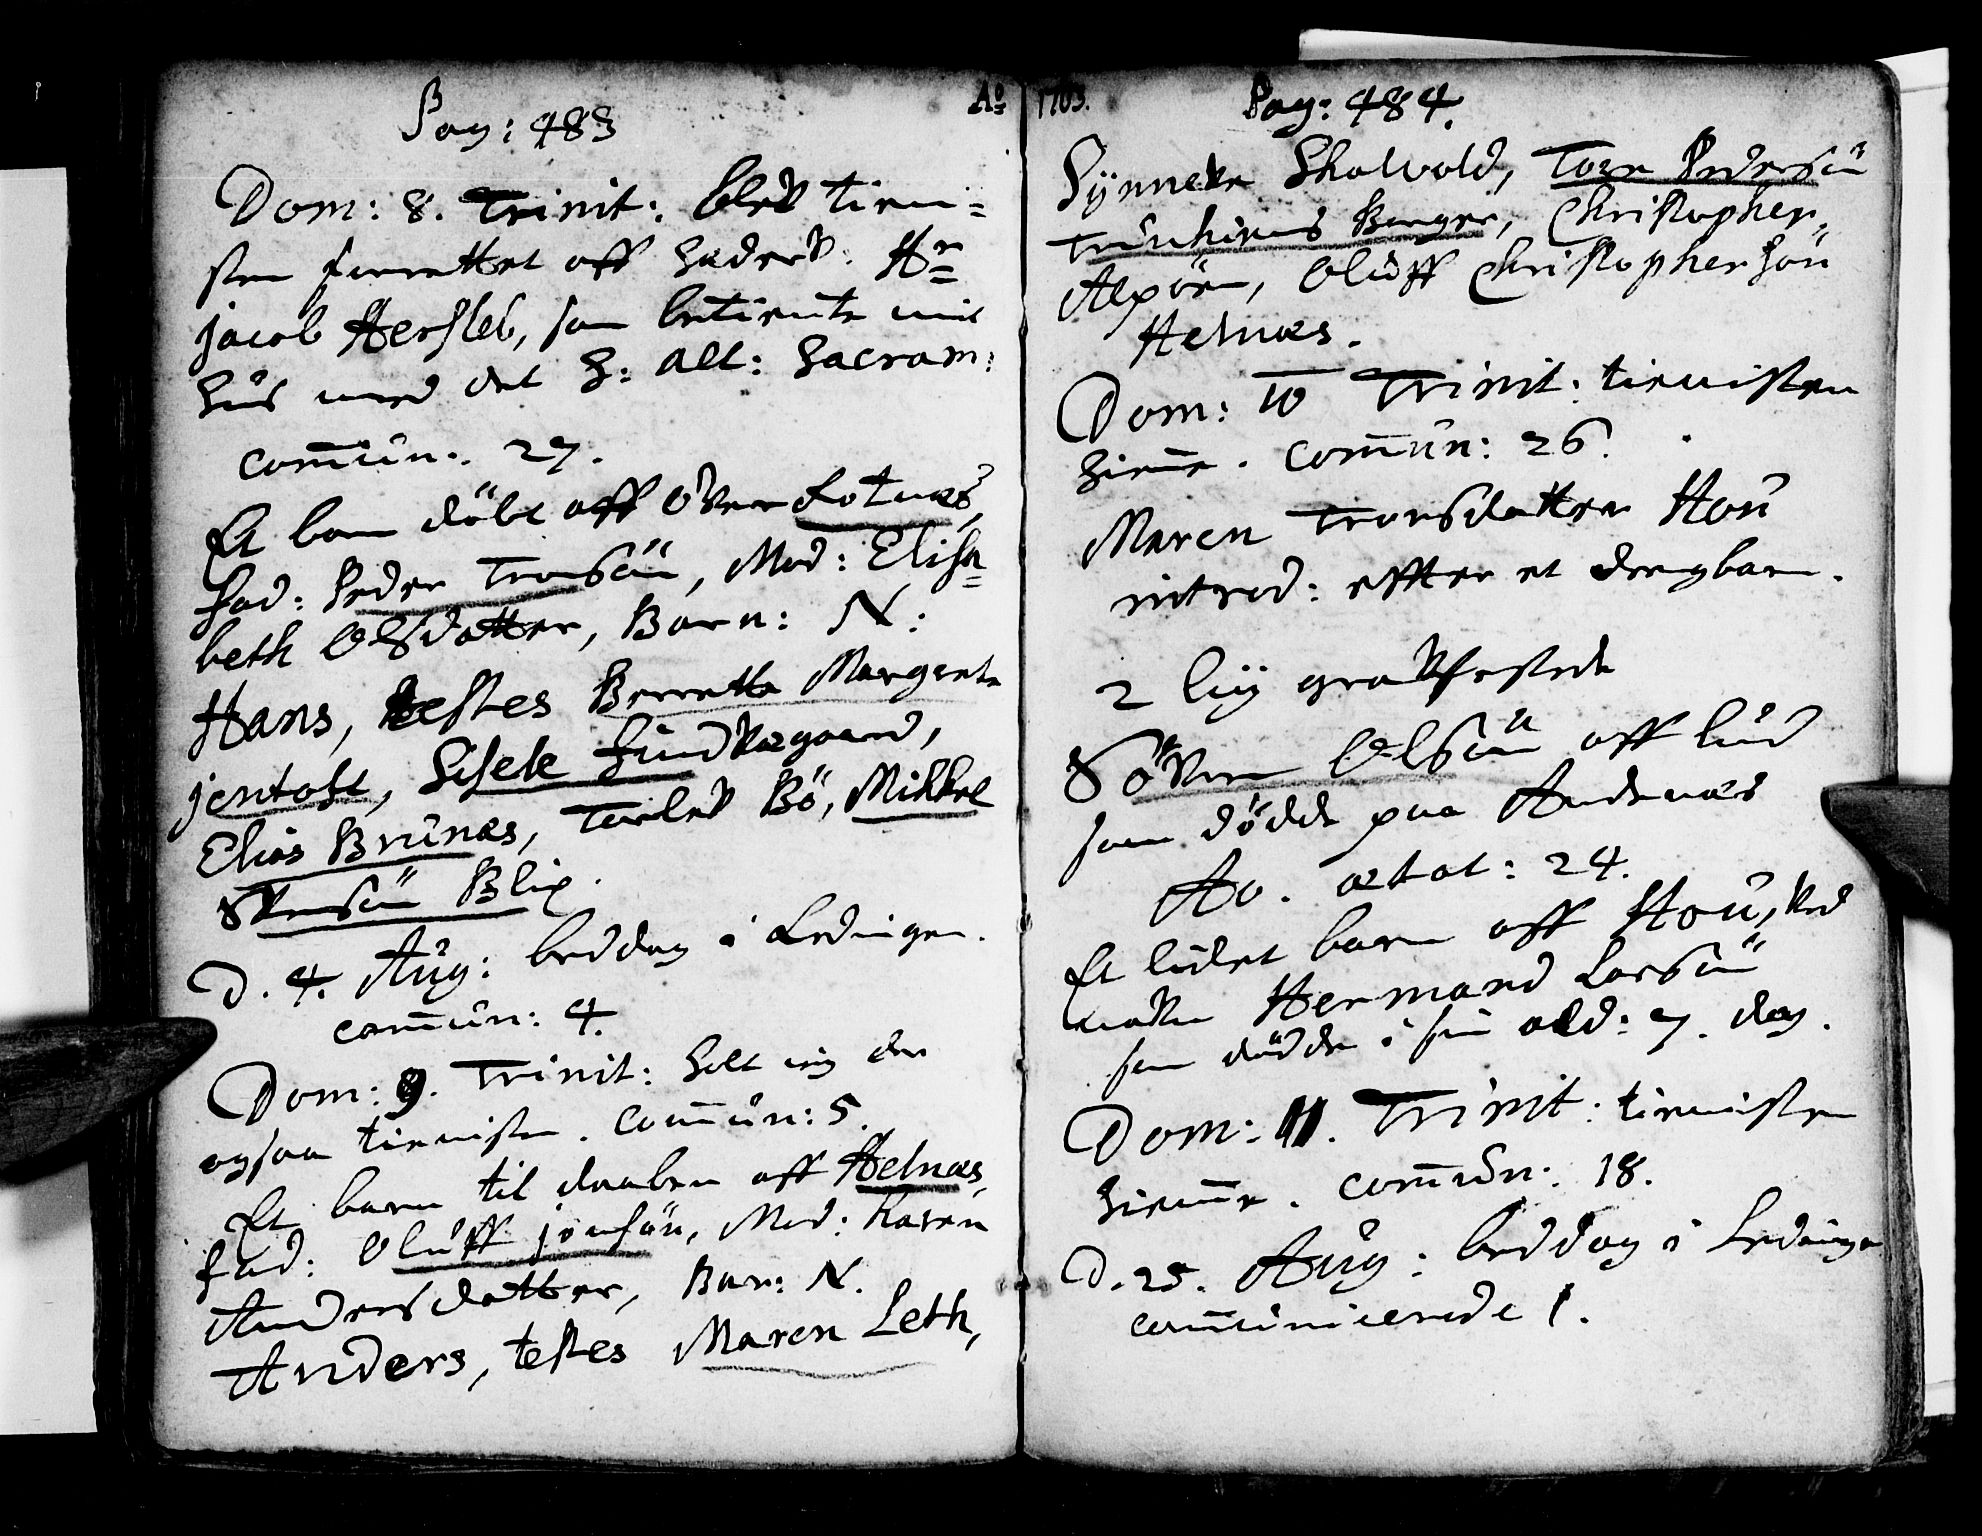 Pag: 483
Dom: 8. Trinit: blev tieni=
sten forrettet aff Hæderv: Hr
jacob Hersleb, som betiente mit
huus med det H: Alt: Sacram:
com̄un: 27.
Et barn döbt aff Over Lotnæs,
fad: Peder Tronsön, Mod: Elisa=
beth Olsdatter, Barn: N:
Hans, testes Berrette Margrete
jentoft, Sisele Sundkægaard,
Elias Brunæs, Tarlev Bö, Mikkel
Svensön Blix.
D. 4. Aug: beddag i Lödingen.
com̄un: 4.
Dom: 9. Trinit: holt ieg der
ogsaa tienisten. Com̄un: 5.
Et barn til daaben aff Helnæs,
fad: Oluff jonsön, Mod: Karen
Andersdatter, Bar: N.
Anders, testes Maren Leth,
Ao 1703.
Pag: 484.
Synneve Skolvold, Tore Pedersön
Trunhiems Borger, Christopher
Alpöen, Oluff Christophersön
Helnæs.
Dom: 10 Trinit: tienisten
hiem̄e. Com̄un: 26.
Maren Tronsdatter Hou
introd: effter et drengbarn.
2 liig gravfestede
Sövren Olsön aff lund
som dödde paa Andenæs
Ao. ætat: 24.
Et lidet barn aff Hou, ved
navn Hermand Larsön
som dödde i sin ald: 7. dag.
Dom: 11. Trinit: tienisten
hiem̄e. Com̄un: 18.
D. 25. Aug: beddag i Lödinge
com̄unicerede 1.